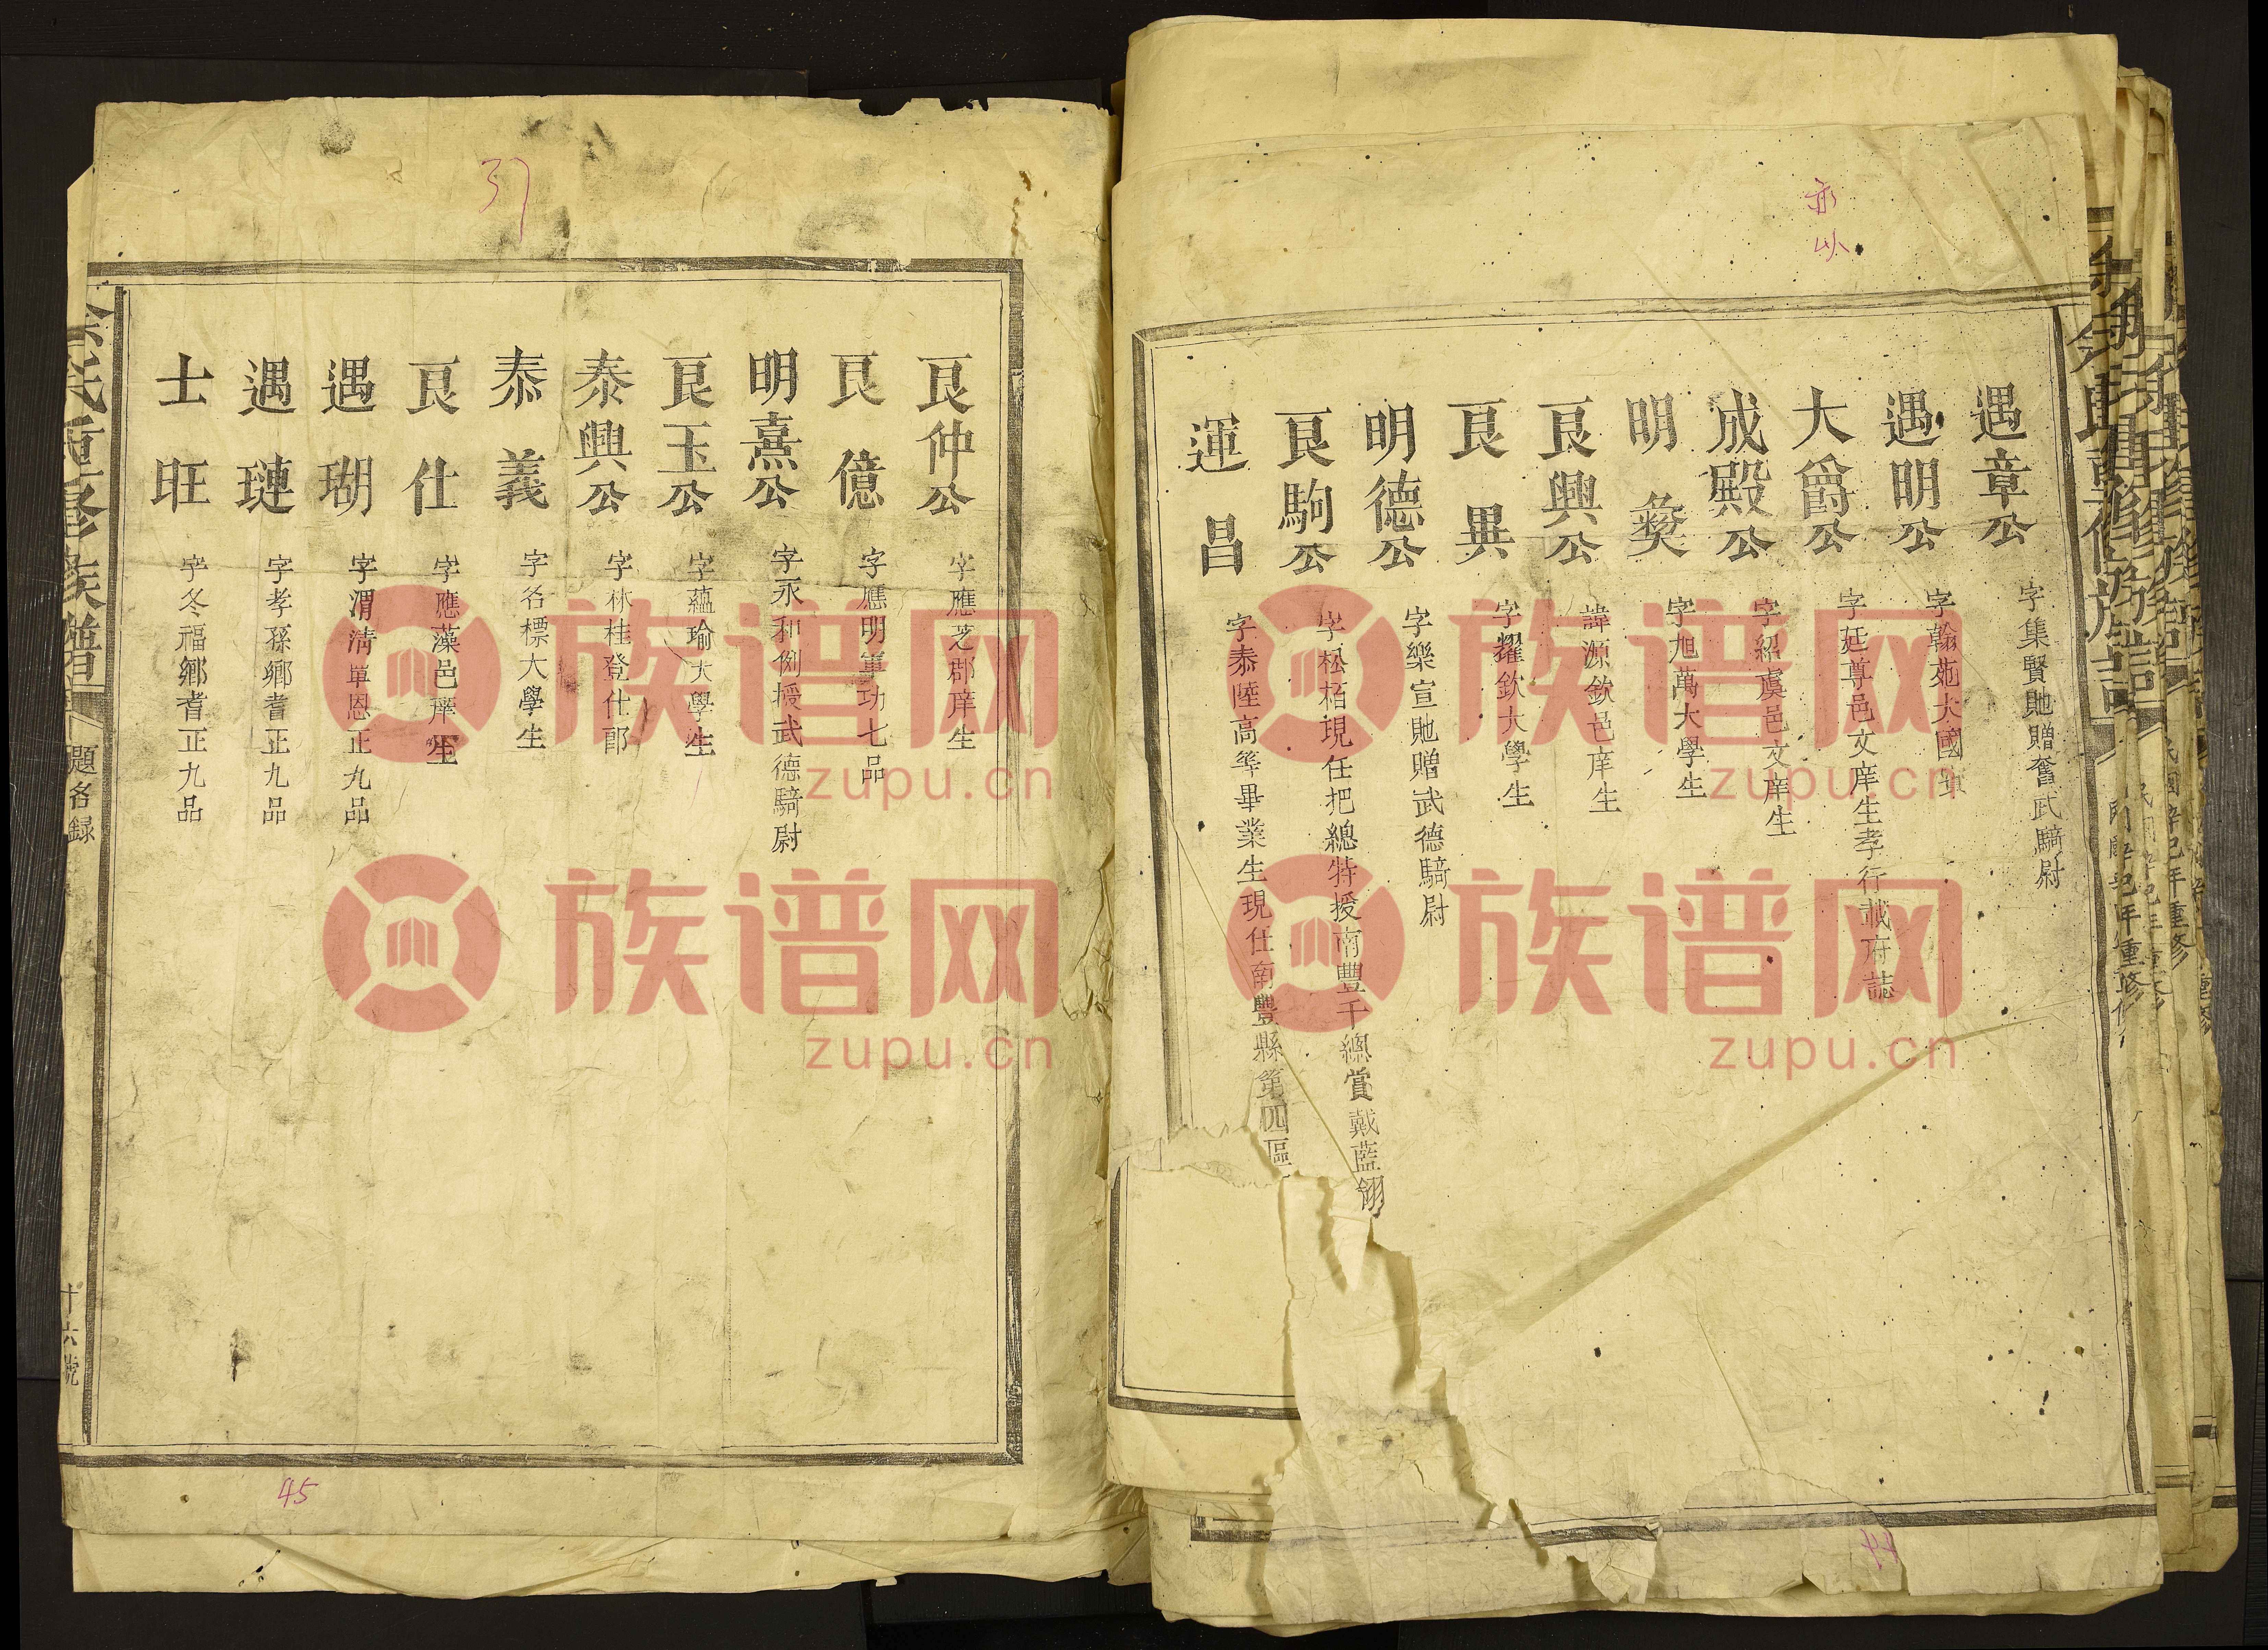 遇章公 字集賢貤贈奮武騎尉
遇明公 字翰苑大國
大爵公 字廷尊邑文庠生孝行載府誌
成殿公 字紹虞邑文庠生
明彜 字旭萬大學生
艮興公 諱源欽邑庠生
艮異 字耀欽大學生
明德公 字樂宣貤贈武德騎尉
艮駒公 字松栢現任把總特授南豐千總賞戴藍翎
運昌 字泰陸高等畢業生現仕南豐縣第四區
44
37
艮仲公 字應芝郡庠生
艮億 字應明軍功七品
明熹公 字永和例授武德騎尉
艮玉公 字蘊瑜大學生
泰興公 字林桂登仕郎
泰義 字名標大學生
艮仕 字應藻邑庠生
遇瑚 字渭清單恩正九品
遇璉 字孝孫鄉耆正九品
士旺 字冬福鄉耆正九品
余氏重修族譜 題名錄 十六號
45
族谱网
zupu.cn
族谱网
zupu.cn
族谱网
zupu.cn
族谱网
zupu.cn